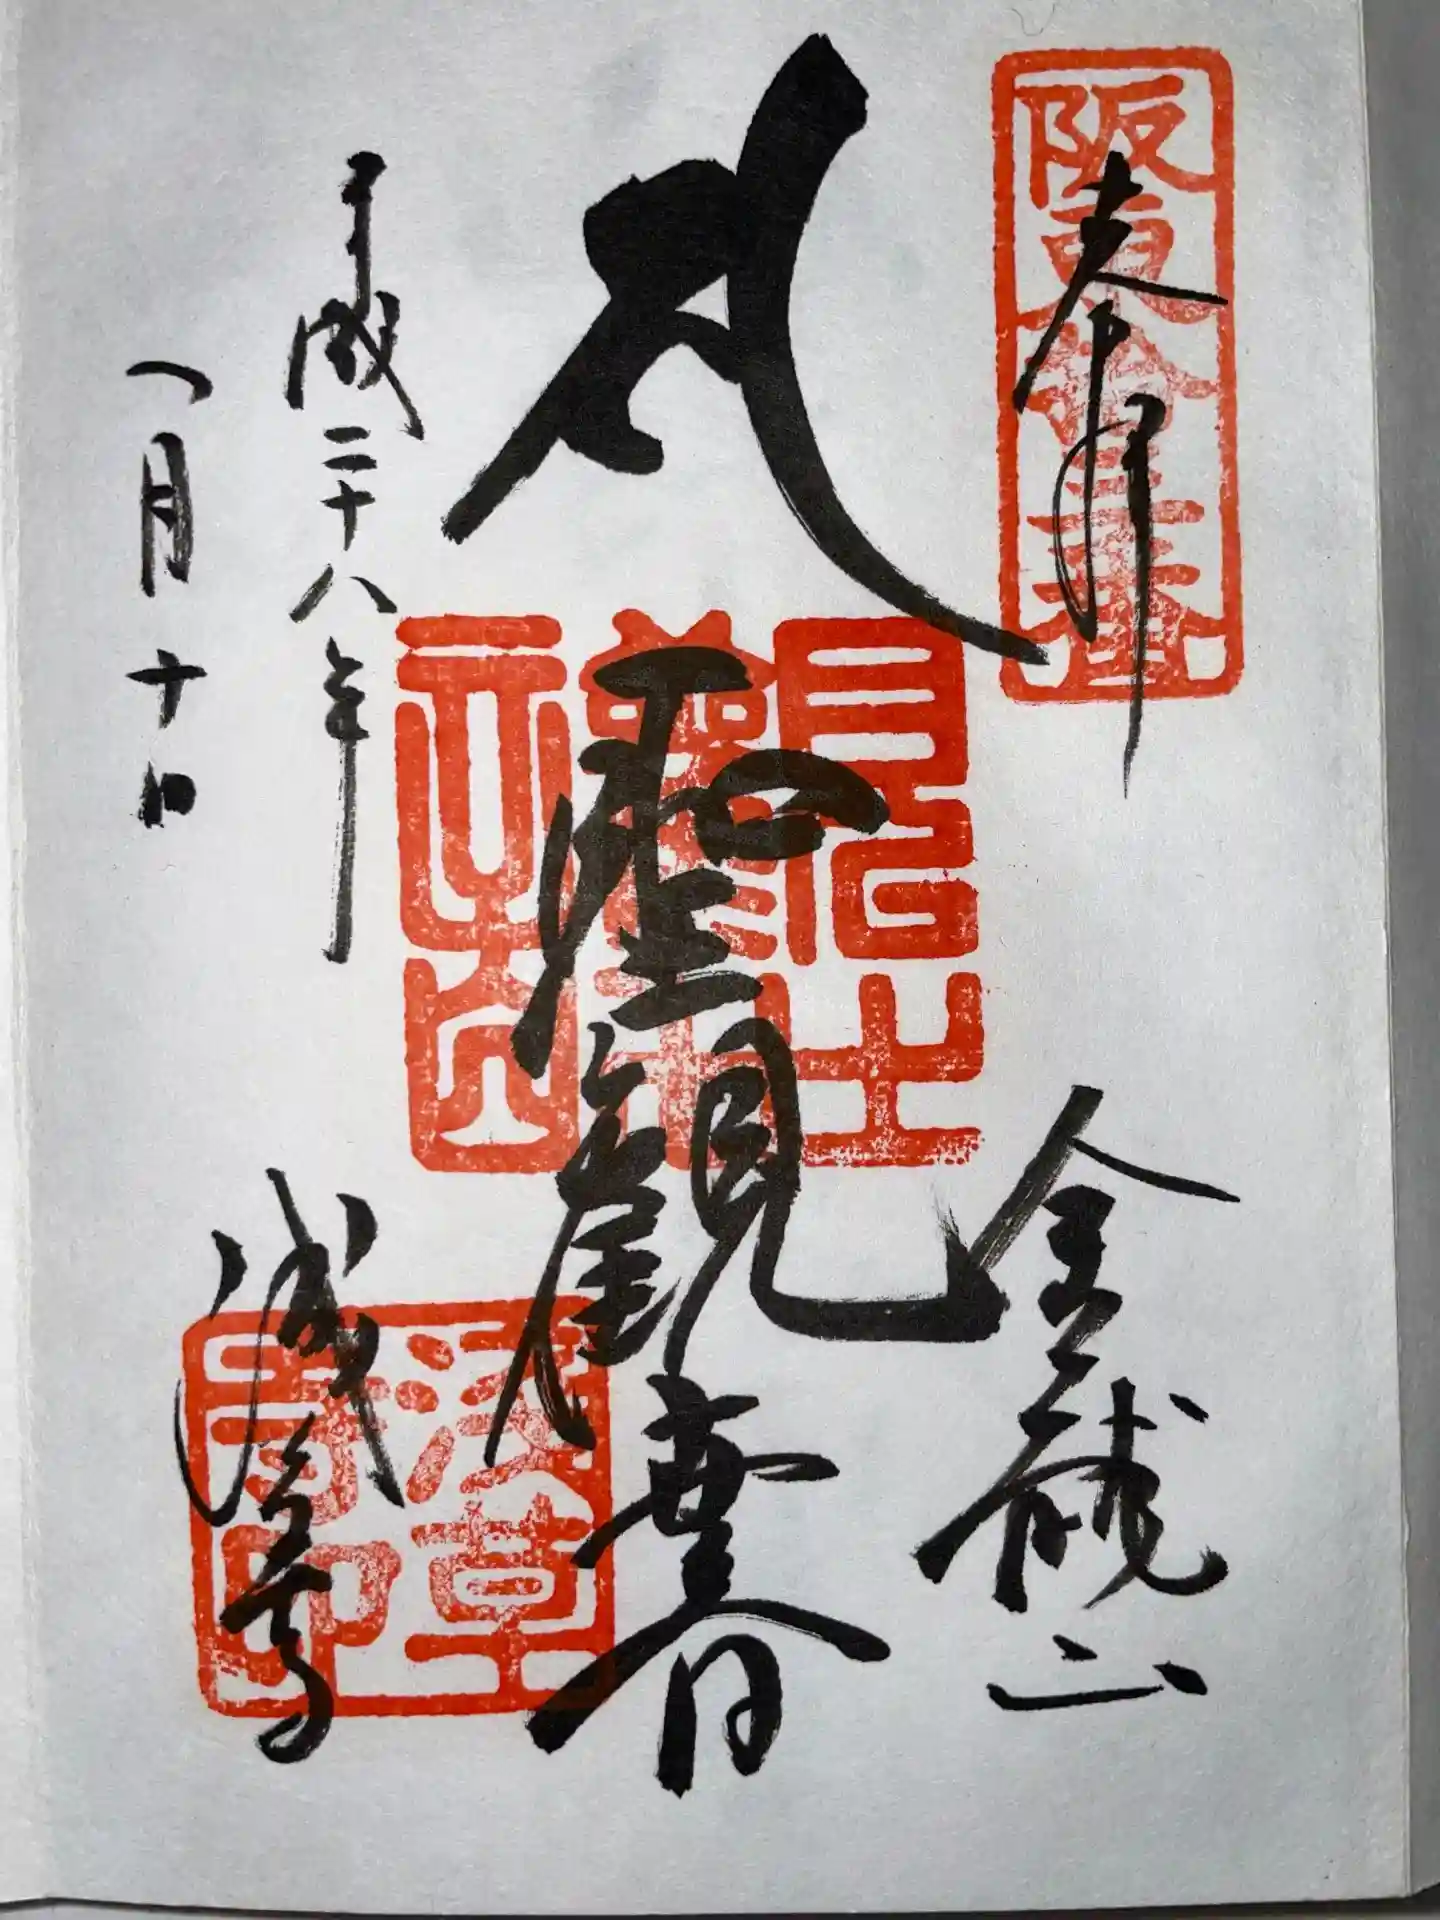 阪東拾三番
奉拝
金龍山
聖観世音
平成二十八年
一月十日
浅草寺
浅草寺印